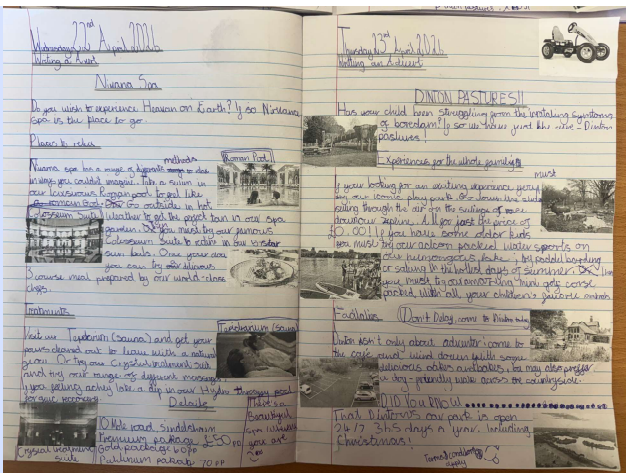 Wednesday 22nd April 2026
Writing a Advert
Nirvana Spa
Do you wish to experience Heaven on Earth? If so Nirvana
Spa is the place to go.
Places to relax
methods
Nirvana spa has a range of different to relax
in ways you couldn't imagine. Take a swim in
our luxurious Roman pool to feel like
a Roman God. Go outside in hot
weather to get the perfect tan in our spa
garden. you must try our famous
Colosseum Suite to relax in our
sun beds. Once your day
you can try our delicious
3 course meal prepared by our world-class
chefs.
Roman Pool
Colosseum Suite
Treatments
Visit our Tepidarium (sauna) and get your
pours cleared out to leave with a natural
Or try our Crystal treatment suit
and try our range of different massages
If you feeling achey take a dip in our Hydro therapy pool
for quic recovery
Tepidarium (sauna)
Details
10 Mole road, Sindlesham
Premium package £50 PP
Gold package 60 PP
Platinum package 70 PP
Crystal treatment
suite
Beautiful
spa
you are
Thursday 23rd April 2026
Writing an Advert
DINTON PASTURES!!
Has your child been struggling from the symptoms
of boredom? If so we have just the cure - Dinton
pastures!
Experiences for the whole family
must
If your looking for an exciting experience
try our iconic play park. Go down the slide
sailing through the air on the swings or
down our zipline. All for just the price of
£0.00! If you have some older kids
you must try our action packed water sports on
our humongous lake; try paddel boarding
or sailing in the hottest days of summer.
you must try our mini golf corse
packed with all your children's favorite animals
Facilities
Don't Delay, come to Dinton today
Dinton isn't only about adventure: come to
the cafe and wind down with some
delicious cakes and bakes,
a dog-friendly walk across our countryside.
DID YOU KNOW
That Dinton's car park is open
24/7 365 days a year. Including
Christmas!
Terms & conditions
apply